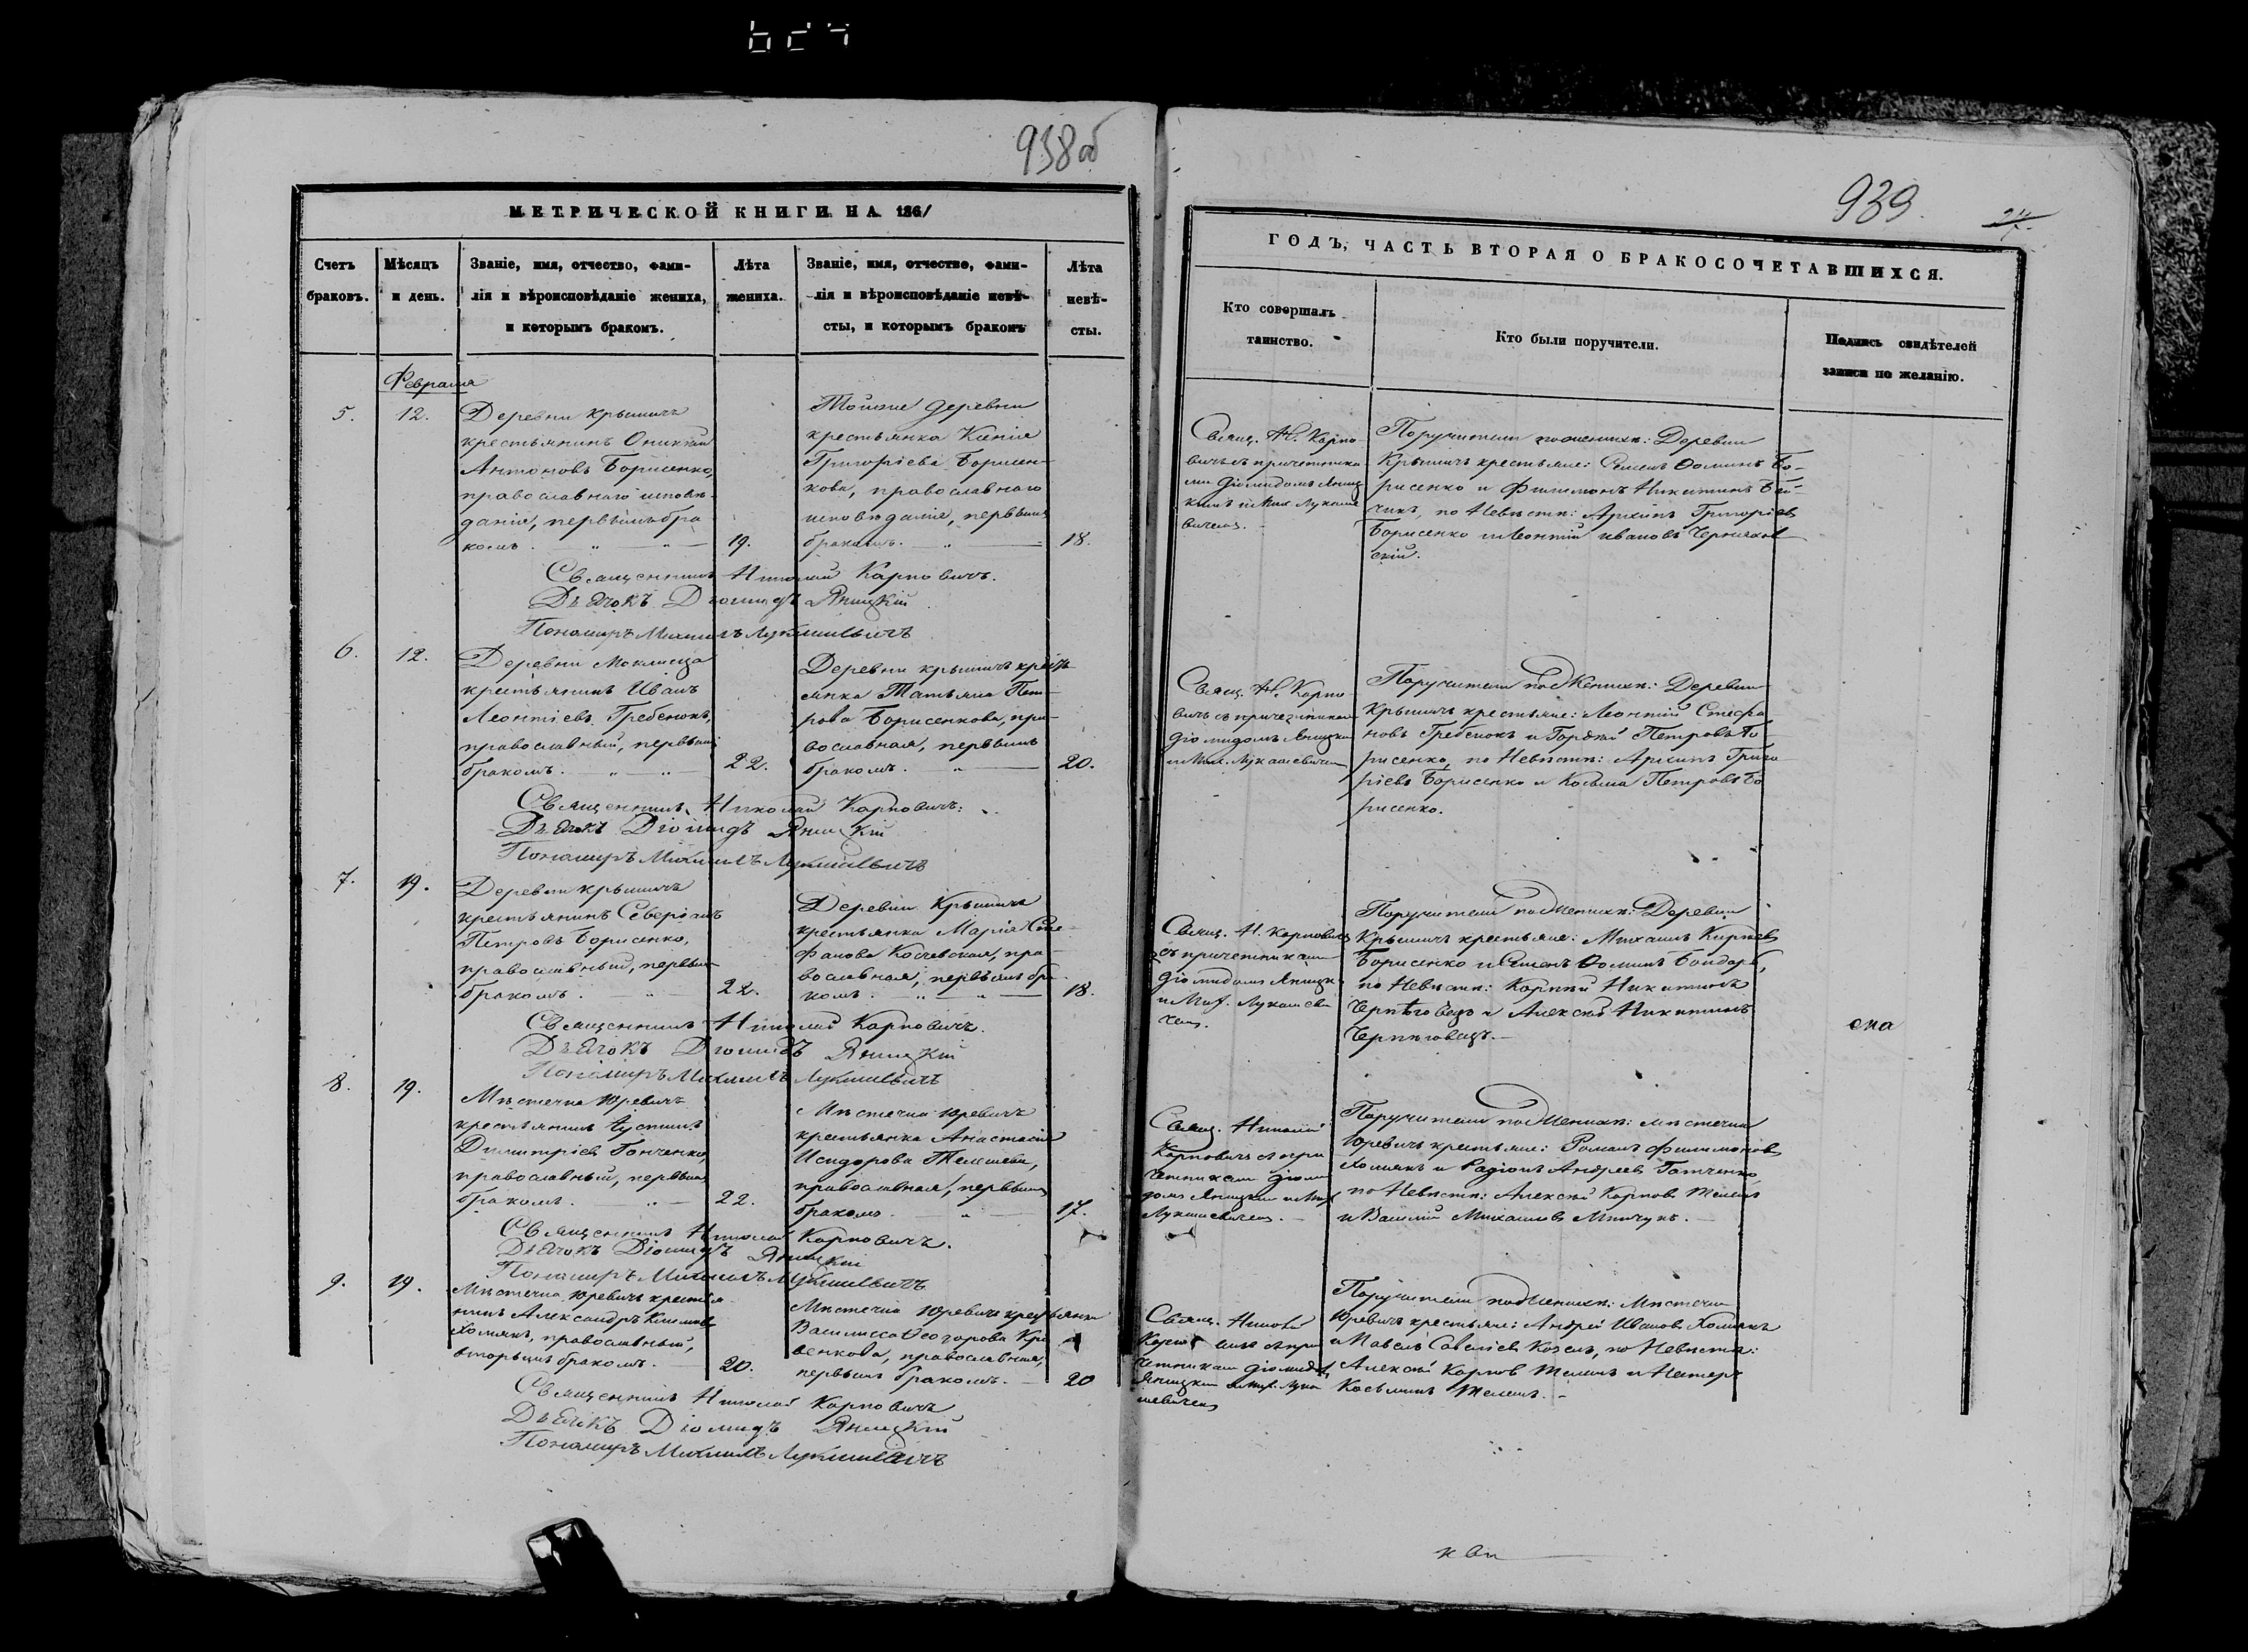 938 об
МЕТРИЧЕСКОЙ КНИГИ НА 1861
Счетъ браковъ.
Мѣсяцъ и день.
Званіе, имя, отчество, фами-
лія и вѣроисповѣданіе жениха,
и которымъ бракомъ.
Лѣта жениха.
Званіе, имя, отчество, фами-
лія и вѣроисповѣданіе невѣ-
сты, и которымъ бракомъ
Лѣта невѣ-
сты.
Февраля
5. 12.
Деревни Крышичъ
крестьянинъ Оникій
Антоновъ Борисенко,
православнаго исповѣ-
данія, первымъ бра
комъ. 19.
Тойже деревни
крестьянка Ксенія
Григоріева Борисен-
кова, православнаго
исповѣданія, первымъ
бракомъ. 18.
Священникъ Николай Карповичъ.
Дьячокъ Діомидъ Яницкій
Пономаръ Михаилъ Лукашевичъ
6. 12.
Деревни Моклища
крестьянинъ Иванъ
Леонтіевъ Гребенокъ,
православный, первымъ
бракомъ. 22.
Деревни Крышичъ кресть
янка Татьяна Пет-
рова Борисенкова, пра-
вославная, первымъ
бракомъ. 20.
Священникъ Николай Карповичъ.
Дьячокъ Діомидъ Яницкій
Пономаръ Михаилъ Лукашевичъ
7. 19.
Деревни Крышичъ
крестьянинъ Северіанъ
Петровъ Борисенко,
православный, первымъ
бракомъ. 22.
Деревни Крышичъ
крестьянка Марія Сте-
фанова Косчевская, пра-
вославная, первымъ бра-
комъ. 18.
Священникъ Николай Карповичъ.
Дьячокъ Діомидъ Яницкій
Пономаръ Михаилъ Лукашевичъ
8. 19.
Мѣстечка Юревичъ
крестьянинъ Іустинъ
Димитріевъ Гонченко,
православный, первымъ
бракомъ. 22.
Мѣстечка Юревичъ
крестьянка Анастасія
Исидорова Телешева,
православная, первымъ
бракомъ. 17.
Священникъ Николай Карповичъ.
Дьячокъ Діомидъ Яницкій
Пономаръ Михаилъ Лукашевичъ
9. 19.
Мѣстечка Юревичъ крестья-
нинъ Александръ Климовъ
Хомякъ, православный,
вторымъ бракомъ. 20.
Мѣстечка Юревичъ крестьянка
Василиса Ѳеодорова Кри
венкова, православная,
первымъ бракомъ. 20
Священникъ Николай Карповичъ
Дьячокъ Діомидъ Яницкій
Пономаръ Михаилъ Лукашевичъ
939.
ГОДЪ, ЧАСТЬ ВТОРАЯ О БРАКОСОЧЕТАВШИХСЯ.
Кто совершалъ
таинство.
Кто были поручители.
Подпись свидѣтелей
записи по желанію.
Свящ. Н. Карпо
вичъ съ причетника
ми Діомидомъ Яниц
кимъ и Мих. Лукаше
вичемъ.
Поручители по женихѣ: Деревни
Крышичъ крестьяне: Семенъ Ѳоминъ Бо-
рисенко и Филимонъ Никитинъ
по Невѣстѣ: Архипъ Григоріевъ
Борисенко и Леонтій Ивановъ Черняхов
скій.
Свящ. Н. Карпо
вичъ съ причетниками
Діомидомъ Яницким
и Мих. Лукашевичемъ
Поручители по Женихѣ: Деревни
Крышичъ крестьяне: Леонтій Стефа
новъ Гребенокъ и Гордѣй Петровъ Бо
рисенко, по Невѣстѣ: Архипъ Григо
ріевъ Борисенко и Косьма Петровъ Бо
рисенко.
Свящ. Н. Карповичъ
съ причетниками
Діомидомъ Яницк
и Мих. Лукашеви
чемъ.
Поручители по Женихѣ: Деревни
Крышичъ крестьяне: Михаилъ Киріевъ
Борисенко и Семенъ Ѳоминъ Бондарь,
по Невѣстѣ: Карпъ Никитинъ
Чернѣговецъ и Алексѣй Никитинъ
Чернѣговецъ.
Свящ. Николай
Карповичъ съ при
четниками Діоми
домъ Яницким и Мих
Лукашевичемъ.
Поручители по Женихѣ: мѣстечка
Юревичъ крестьяне: Романъ Филимоновъ
Хомякъ и Радіонъ Андреевъ Гонченко
по Невѣстѣ: Алексѣй Карповъ Телешъ
и Василій Михайловъ Минчукъ.
Свящ. Николай
Карповичъ съ при
четниками Діомидомъ
Яницким и Мих. Лука
шевичемъ
Поручители по Женихѣ: Мѣстечка
Юревичъ крестьяне: Андрей Ивановъ Хомякъ
и Павелъ Савеліевъ Козелъ, по Невѣстѣ:
Алексѣй Карповъ Телешъ и Нестеръ
Косьминъ Телешъ.